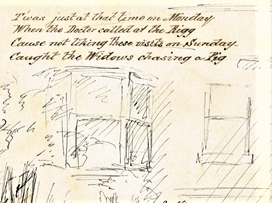 T'was just at that time on Monday
When the Doctor called at the Rigg
Cause not liking these visits on Sunday
Caught the Widows chasing a Pig